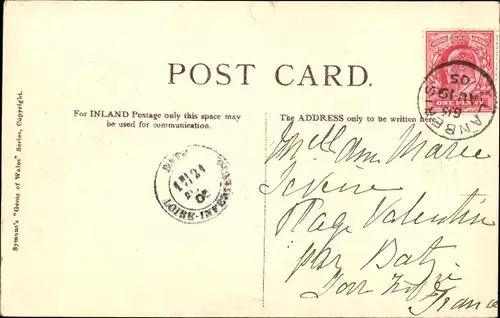 POST CARD.
For INLAND Postage only this space may
be used for communication.
The ADDRESS only to be written here.
Symons's "Gems of Wales" Series, Copyright.
ONE PENNY
05
AU 19
LOIRE-INFER
Marie
Plage Valentin
par Batz
Loire Infre
France